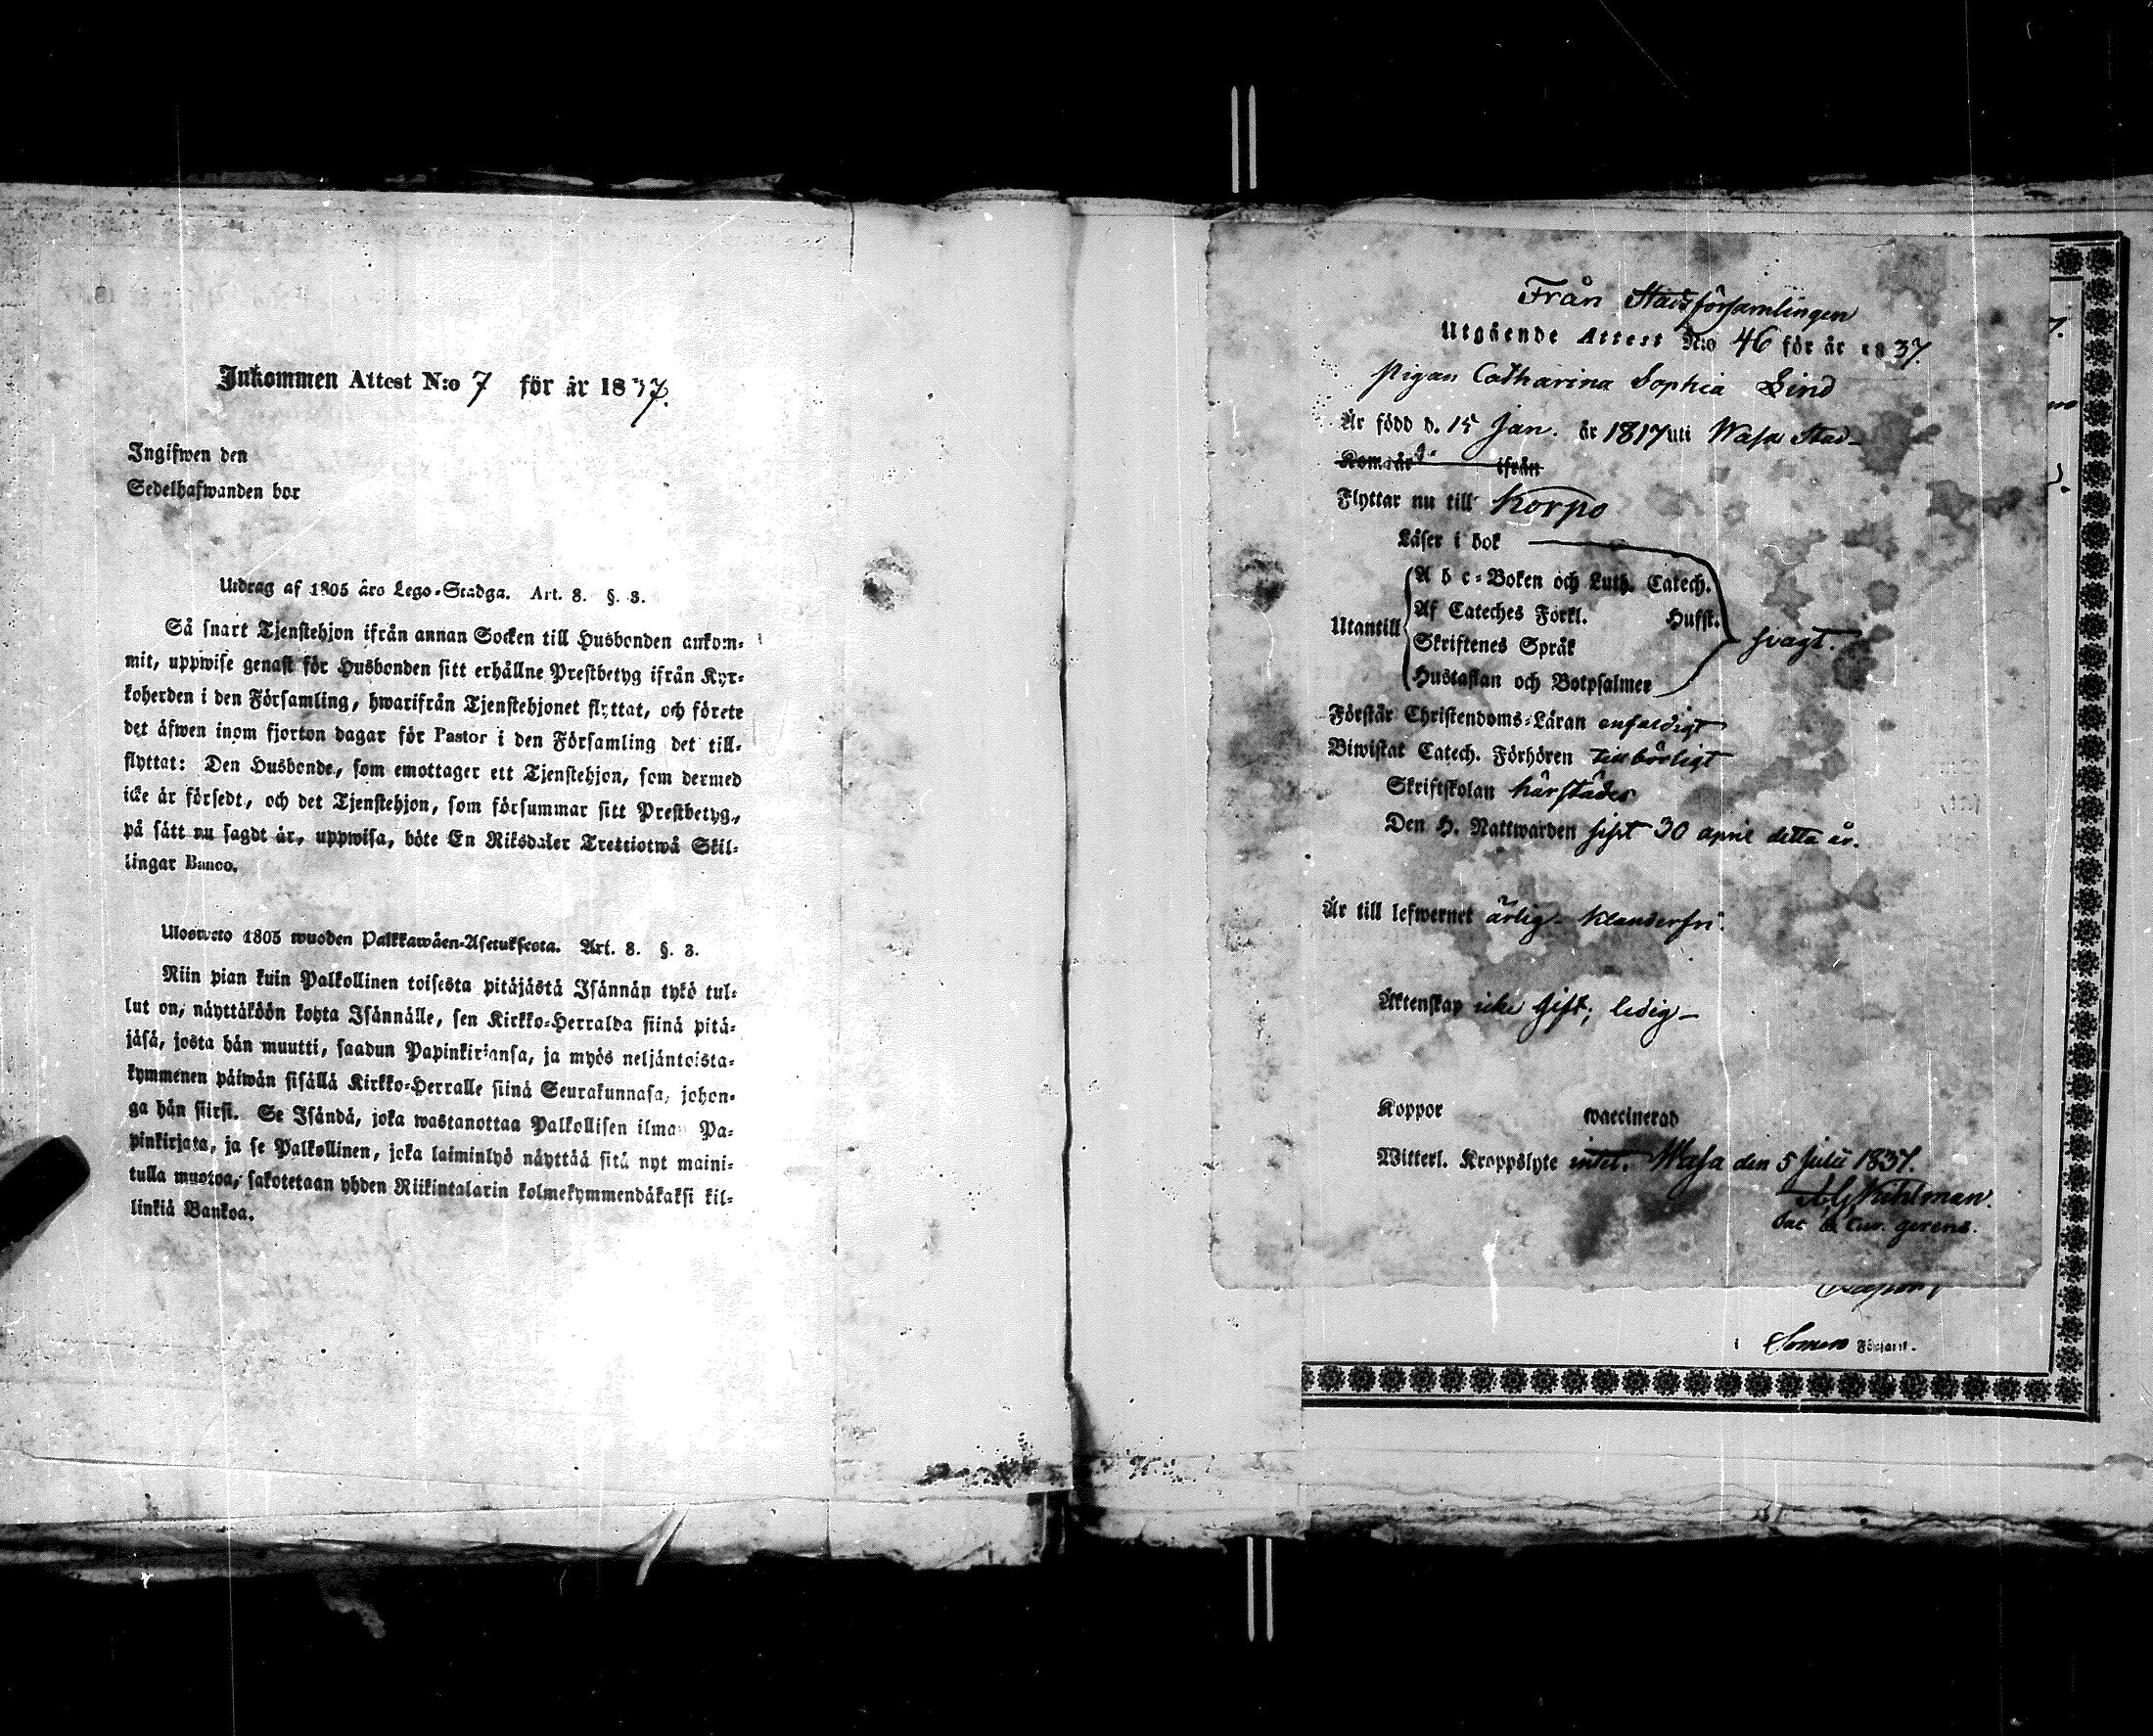 Inkommen Attest N:o 7 för år 1837.
Ingifwen den
Sedelhafwanden bor
Utdrag af 1805 års Lego-Stadga. Art. 8. §. 3.
Så snart Tjenstehjon ifrån annan Socken till Husbonden ankom-
mit, uppwise genast för Husbonden sitt erhållne Prestbetyg ifrån Kyr-
koherden i den Församling, hwarifrån Tjenstehjonet flyttat, och förete
det äfwen inom fjorton dagar för Pastor i den Församling det till-
flyttat: Den Husbonde, som emottager ett Tjenstehjon, som dermed
icke är försedt, och det Tjenstehjon, som försummar sitt Prestbetyg,
på sätt nu sagdt är, uppwisa, böte En Riksdaler Trettiotwå Skil-
lingar Banco.
Ulosweto 1805 wuoden Palkkawäen-Asetuksesta. Art. 8. §. 3.
Niin pian kuin Palkollinen toisesta pitäjästä Isännän tykö tul-
lut on, näyttäköön kohta Isännälle, sen Kirkko-Herralda siinä pitä-
jäsä, josta hän muutti, saadun Papinkirjansa, ja myös neljäntoista-
kymmenen päiwän sisällä Kirkko-Herralle siinä Seurakunnasa, johon-
ga hän siirsi. Se Isändä, joka wastanottaa Palkollisen ilman Pa-
pinkirjata, ja se Palkollinen, joka laiminlyö näyttää sitä nyt maini-
tulla muotoa, sakotetaan yhden Riikintalarin kolmekymmendäkaksi kil-
linkiä Bankoa.
Från Stadsförsamlingen
Utgående Attest N:o 46 för år 1837.
Pigan Catharina Sophia Lind
Är född d. 15 Jan. år 1817 uti Wasa Stad
Kom år ifrån
Flyttar nu till Korpo
Läser i bok
A b c-Boken och Luth. Catech.
Af Cateches Förkl. Husst.
Utantill
Skriftenes Språk
svagt.
Hustaflan och Botpsalmer
Förstår Christendoms-Läran enfaldigt
Biwistat Catech. Förhören tillbörligt
Skriftskolan härstädes
Den H. Nattwarden sist 30 april detta år.
Är till lefwernet ärlig klanderfri.
Äktenskap icke gift; ledig
Koppor waccinerad
Witterl. Kroppslyte intet. Wasa den 5 Julii 1837.
Kihlman.
Sac & Cur. gerens.
i Somero Församl.